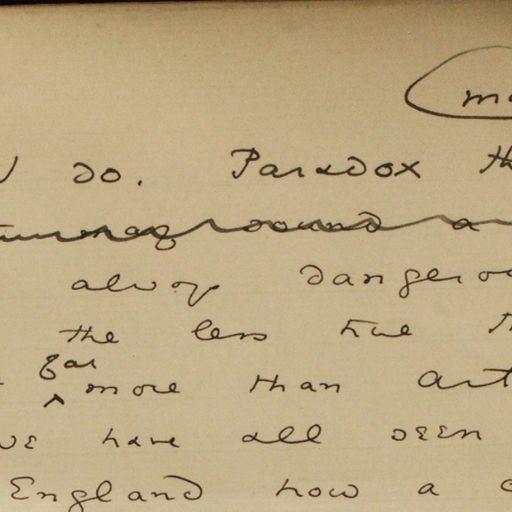 do. Paradox
a
always dangerou
the less true
far
more than art
we have all seen
England how a